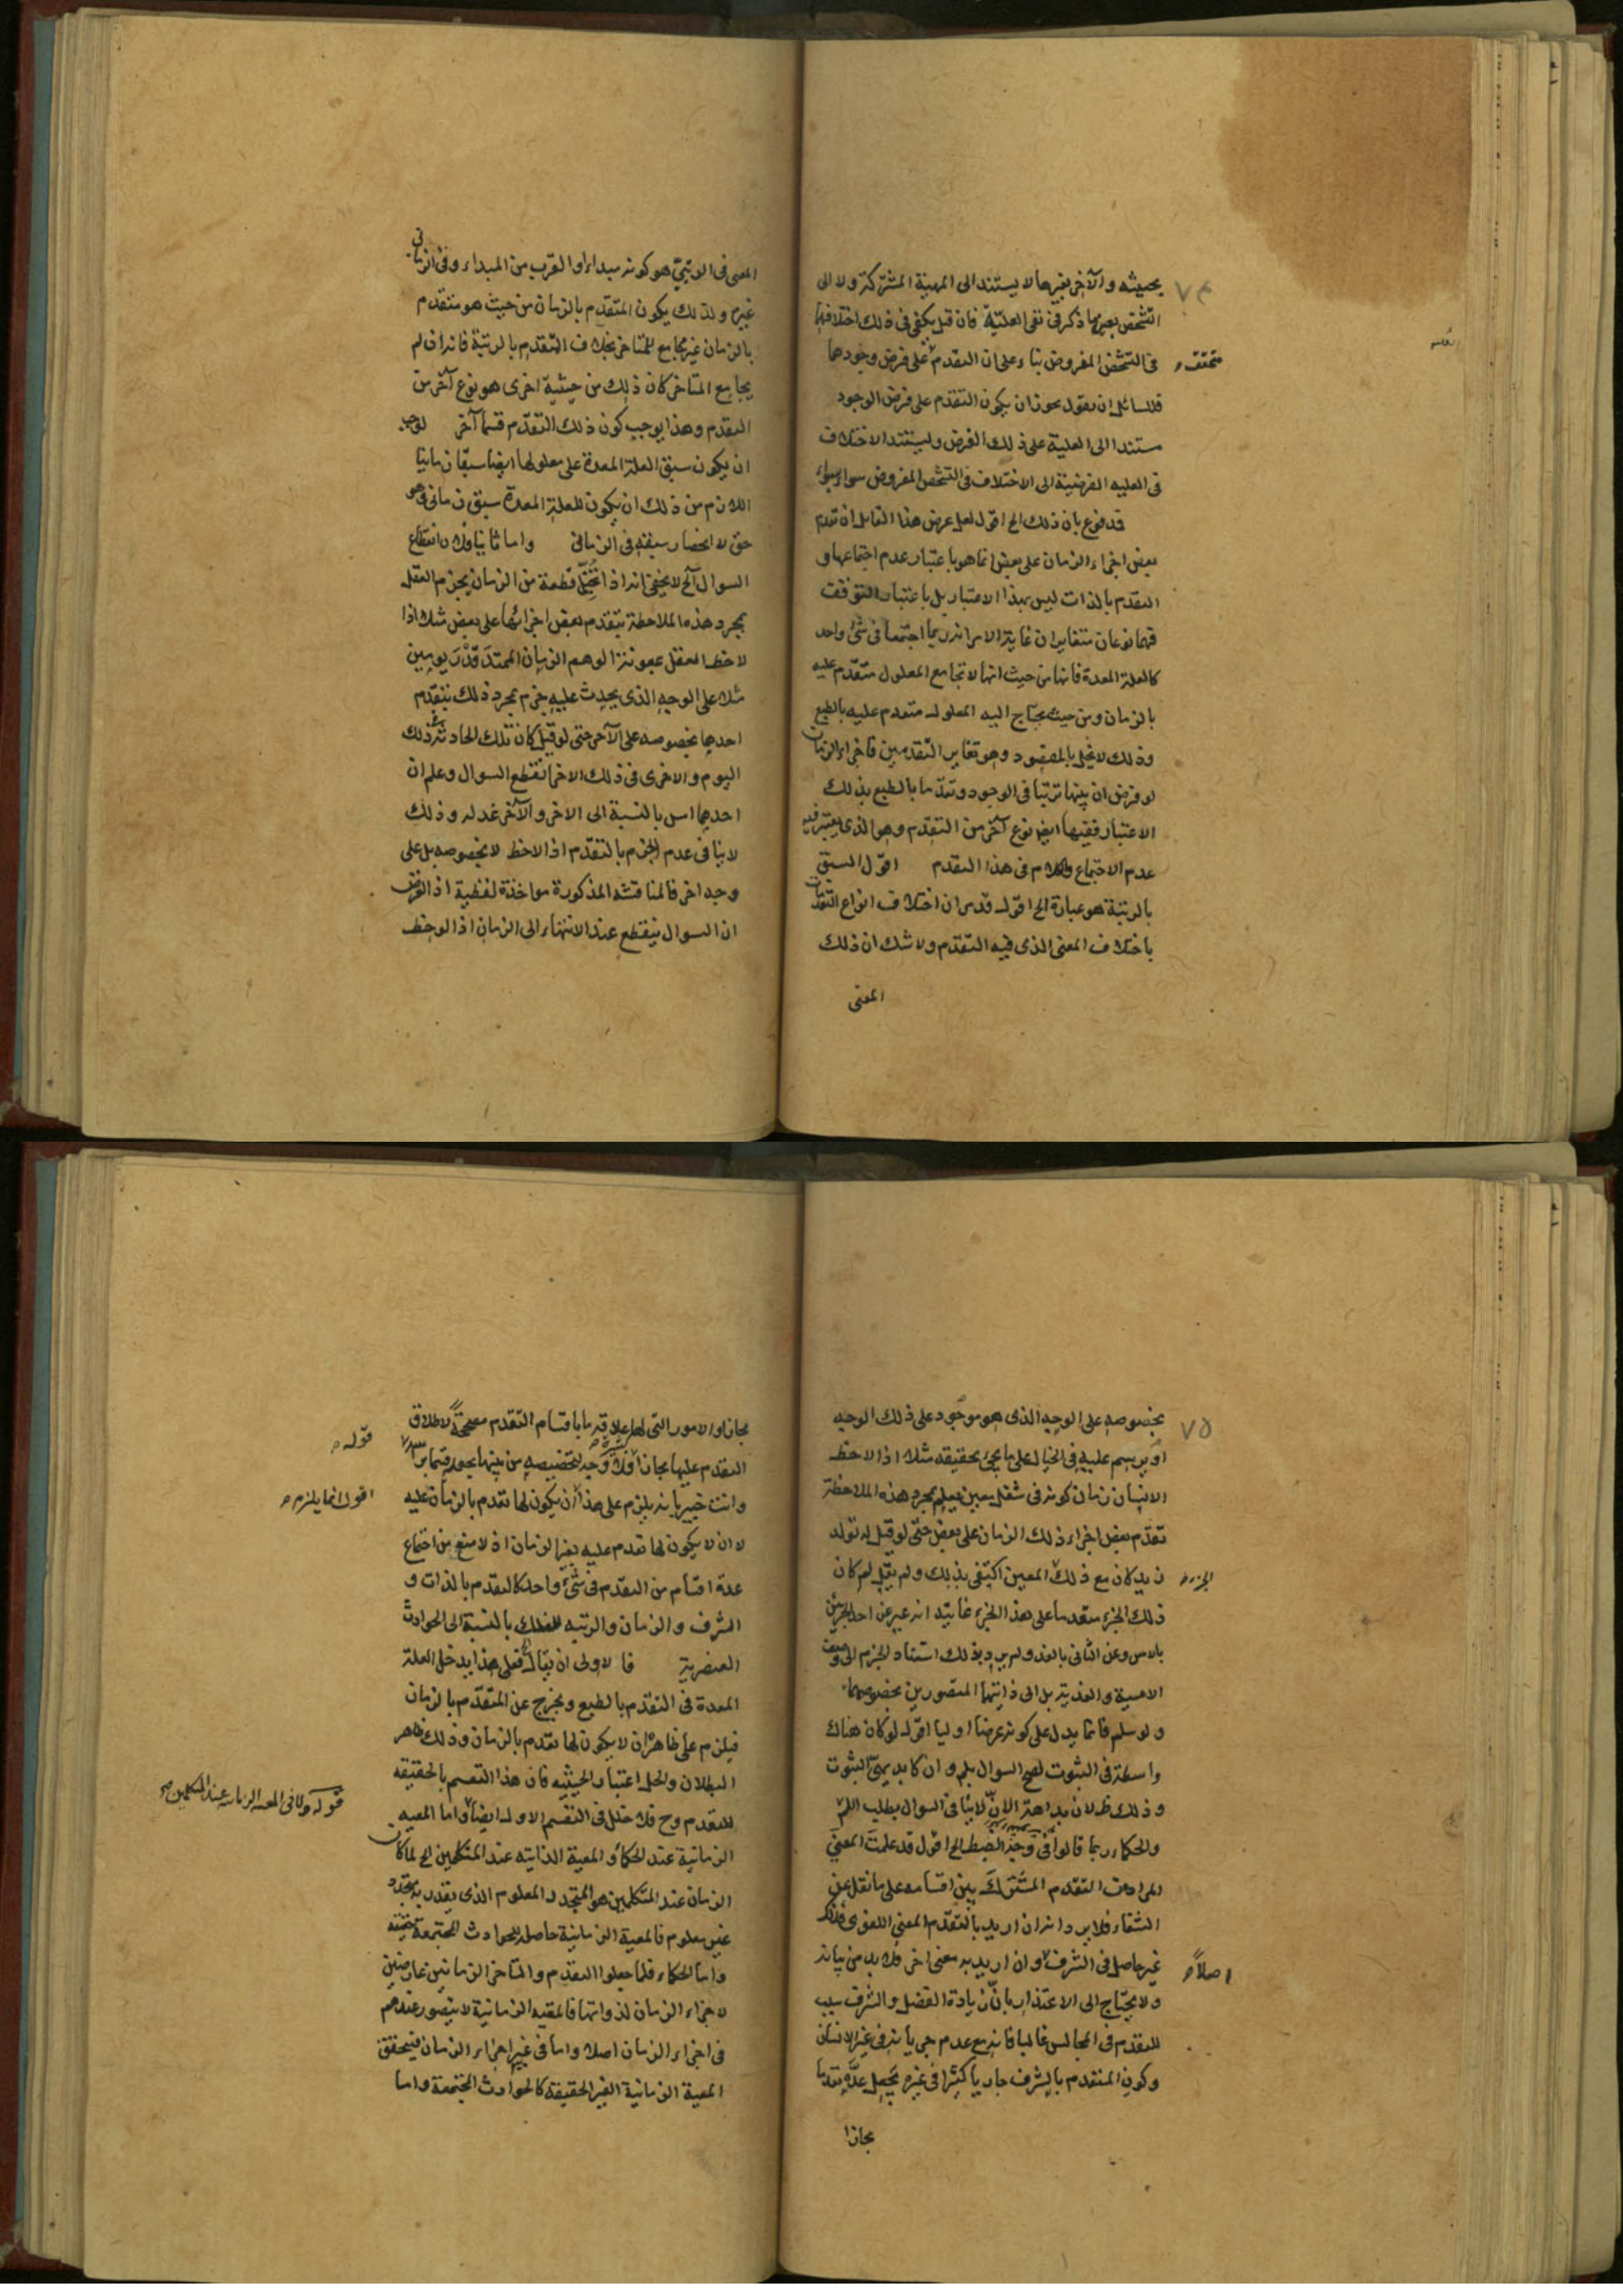 ٧٤
بحيثه والآخر بغيرها لا يستند الى المهية المشتركة ولا الى
التشخص بعين ما ذكر فى نفى العلية فان قيل يكفى فى ذلك اختلافهما
متحقق
فى التشخص المفروض بناء وعلى ان التقدم على فرض وجودها
فللسائل ان يقول يجوز ان يكون التقدم على فرض الوجود
مستندا الى العلية على ذلك الفرض ويستند الاختلاف
فى العليه الفرضية الى الاختلاف فى التشخص المفروض سواء بسواء
فدفوع بان ذلك الخ اقول لعل غرض هذا القايل ان تقدم
بعض اجزاء الزمان على بعض انما هو باعتبار عدم اجتماعها و
التقدم بالذات ليس بهذا الاعتبار بل باعتبار التوقف
فهما نوعان متغايران غاية الامر انه ربما اجتمعا فى شئ واحد
كالعلة المعدة فانها من حيث انها لا تجامع المعلول متقدم عليه
بالزمان ومن حيث يحتاج اليه المعلول متقدم عليه بالطبع
وذلك لا يخل بالمقصود وهو تغاير التقدمين فاجزاء الزمان
لو فرض ان بينها ترتبا فى الوجود وتقدما بالطبع بذلك
الاعتبار ففيها ايضا نوع آخر من التقدم وهو الذى يعتبر فيه
عدم الاجتماع والكلام فى هذا التقدم اقول السبق
بالرتبة هو عبارة الخ اقول قد مر ان اختلاف انواع التقدمات
باختلاف المعنى الذى فيه التقدم ولا شك ان ذلك
المعنى
المعنى فى الرتبى هو كونه مبداء او القرب من المبداء وفى الزمانى
غيره ولذلك يكون المتقدم بالزمان من حيث هو متقدم
بالزمان غير مجامع للمتاخر بخلاف المتقدم بالرتبة فانه ان لم
يجامع المتاخر كان ذلك من حيثية اخرى هو نوع آخر من
التقدم وهذا يوجب كون ذلك التقدم قسما آخر لوجب
ان يكون سبق العلة المعدة على معلولها ايضا سبقا زمانيا
اللازم من ذلك ان يكون للعلة المعدة سبق زمانى وهو
حق لا انحصار سبقه فى الزمانى واما ثانيا فلان انقطاع
السوال آلخ لا يخفى انه اذا تخيل قطعة من الزمان يجزم العقل
بمجرد هذه الملاحظة بتقدم بعض اجزائها على بعض مثلا اذا
لاحظ العقل بمعونة الوهم الزمان الممتد قدر يومين
مثلا على الوجه الذى يحدث عليه جزم بمجرد ذلك بتقدم
احدهما بخصوصه على الآخر حتى لو قيل كان تلك الحادثة فى ذلك
اليوم والاخرى فى ذلك الاخر انقطع السوال وعلم ان
احدهما امس بالنسبة الى الاخر والآخر غد له وذلك
لا ينافى عدم الجزم بالتقدم اذا لاحظ لا بخصوصه بل على
وجه اخر فالمناقشه المذكورة مواخذة لفظية اذ الغرض
ان السوال ينقطع عند الانتهاء الى الزمان اذا لوحظ
٧٥
بخصوصه على الوجه الذى هو موجود على ذلك الوجه
او يرسم عليه فى الخيال على ما يجئ بحقيقه مثلا اذا لاحظ
الانسان زمان كونه فى شغل معين يعلم بمجرد هذه الملاحظة
تقدم بعض اجزاء ذلك الزمان على بعض حتى لو قيل له تولد
الجزء
زيد كان مع ذلك المعين اكتفى بذلك ولم يقل لم كان
ذلك الجزء متقدما على هذا الجزء غايته انه عبر عن احد الجزئين
بالامس وعن الثانى بالغد ولم يرد بذلك استناد الجزم الى وصف
الامسية والغدية بل الى ذاتيهما المتصورين بخصوصهما
ولو سلم فانما يدل على كونه عرضا اوليا اقول لو كان هناك
واسطة فى الثبوت لصح السوال بلم وان كان بديهى الثبوت
وذلك ظ لان بداهة الإن لا ينافى السوال بطلب اللم
والحكماء ربما قالوا فى وجه الضبط الخ اقول قد علمت المعنى
المراد من التقدم المشترك بين اقسامه على ما نقل عن
الشفاء فلا يرد انه ان اريد بالتقدم المعنى اللغوى فذلك
اصلا
غير حاصل فى الشرف وان اريد به معنى اخر فلا بد من بيانه
ولا يحتاج الى الاعتذار بان زيادة الفضل والشرف سبب
للتقدم فى المجالس غالبا فانه مع عدم جريانه فى غير الانسان
وكون المتقدم بالشرف جاريا كثيرا فى غيره يجعل عده تقدما
مجازا
مجازا والامور التى لها علاقة ما باقسام التقدم مصححة لاطلاق
قوله
كثيرة
التقدم عليها مجازا فلا وجه لتخصيصه من بينها بجعله قسما براسه
اقول انما يلزم
وانت خبير بانه يلزم على هذا ان يكون لها تقدم بالزمان عليه
لا ان لا يكون لها تقدم عليه بغير الزمان اذ لا منع من اجتماع
عدة اقسام من التقدم فى شئ واحد كالتقدم بالذات و
الشرف والزمان والرتبه للفلك بالنسبة الى الحوادث
العنصرية فالاولى ان يقال فعلى هذا يدخل العلة
المعدة فى التقدم بالطبع ويخرج عن المتقدم بالزمان
فيلزم على ظاهره ان لا يكون لها تقدم بالزمان وذلك ظاهر
البطلان والحل اعتبار الحيثيه فان هذا التقسيم بالحقيقه
قوله ولا فى المعية الزمانية عند المتكلمين
للتقدم وح فلا خلل فى التقسيم الاول ايضا واما المعيه
الزمانية عند الحكماء والمعية الذاتيه عند المتكلمين الخ لما كان
الزمان عند المتكلمين هو المتجدد المعلوم الذى يقدر به متجدد
غير معلوم فالمعية الزمانية حاصله للحوادث المجتمعة حقيقة
واما الحكماء فلما جعلوا التقدم والتاخر الزمانيين عارضين
لاجزاء الزمان لذواتها فالمعيه الزمانية لا يتصور عندهم
فى اجزاء الزمان اصلا واما فى غير اجزاء الزمان فيتحقق
المعية الزمانية الغير الحقيقة كالحوادث المجتمعة واما